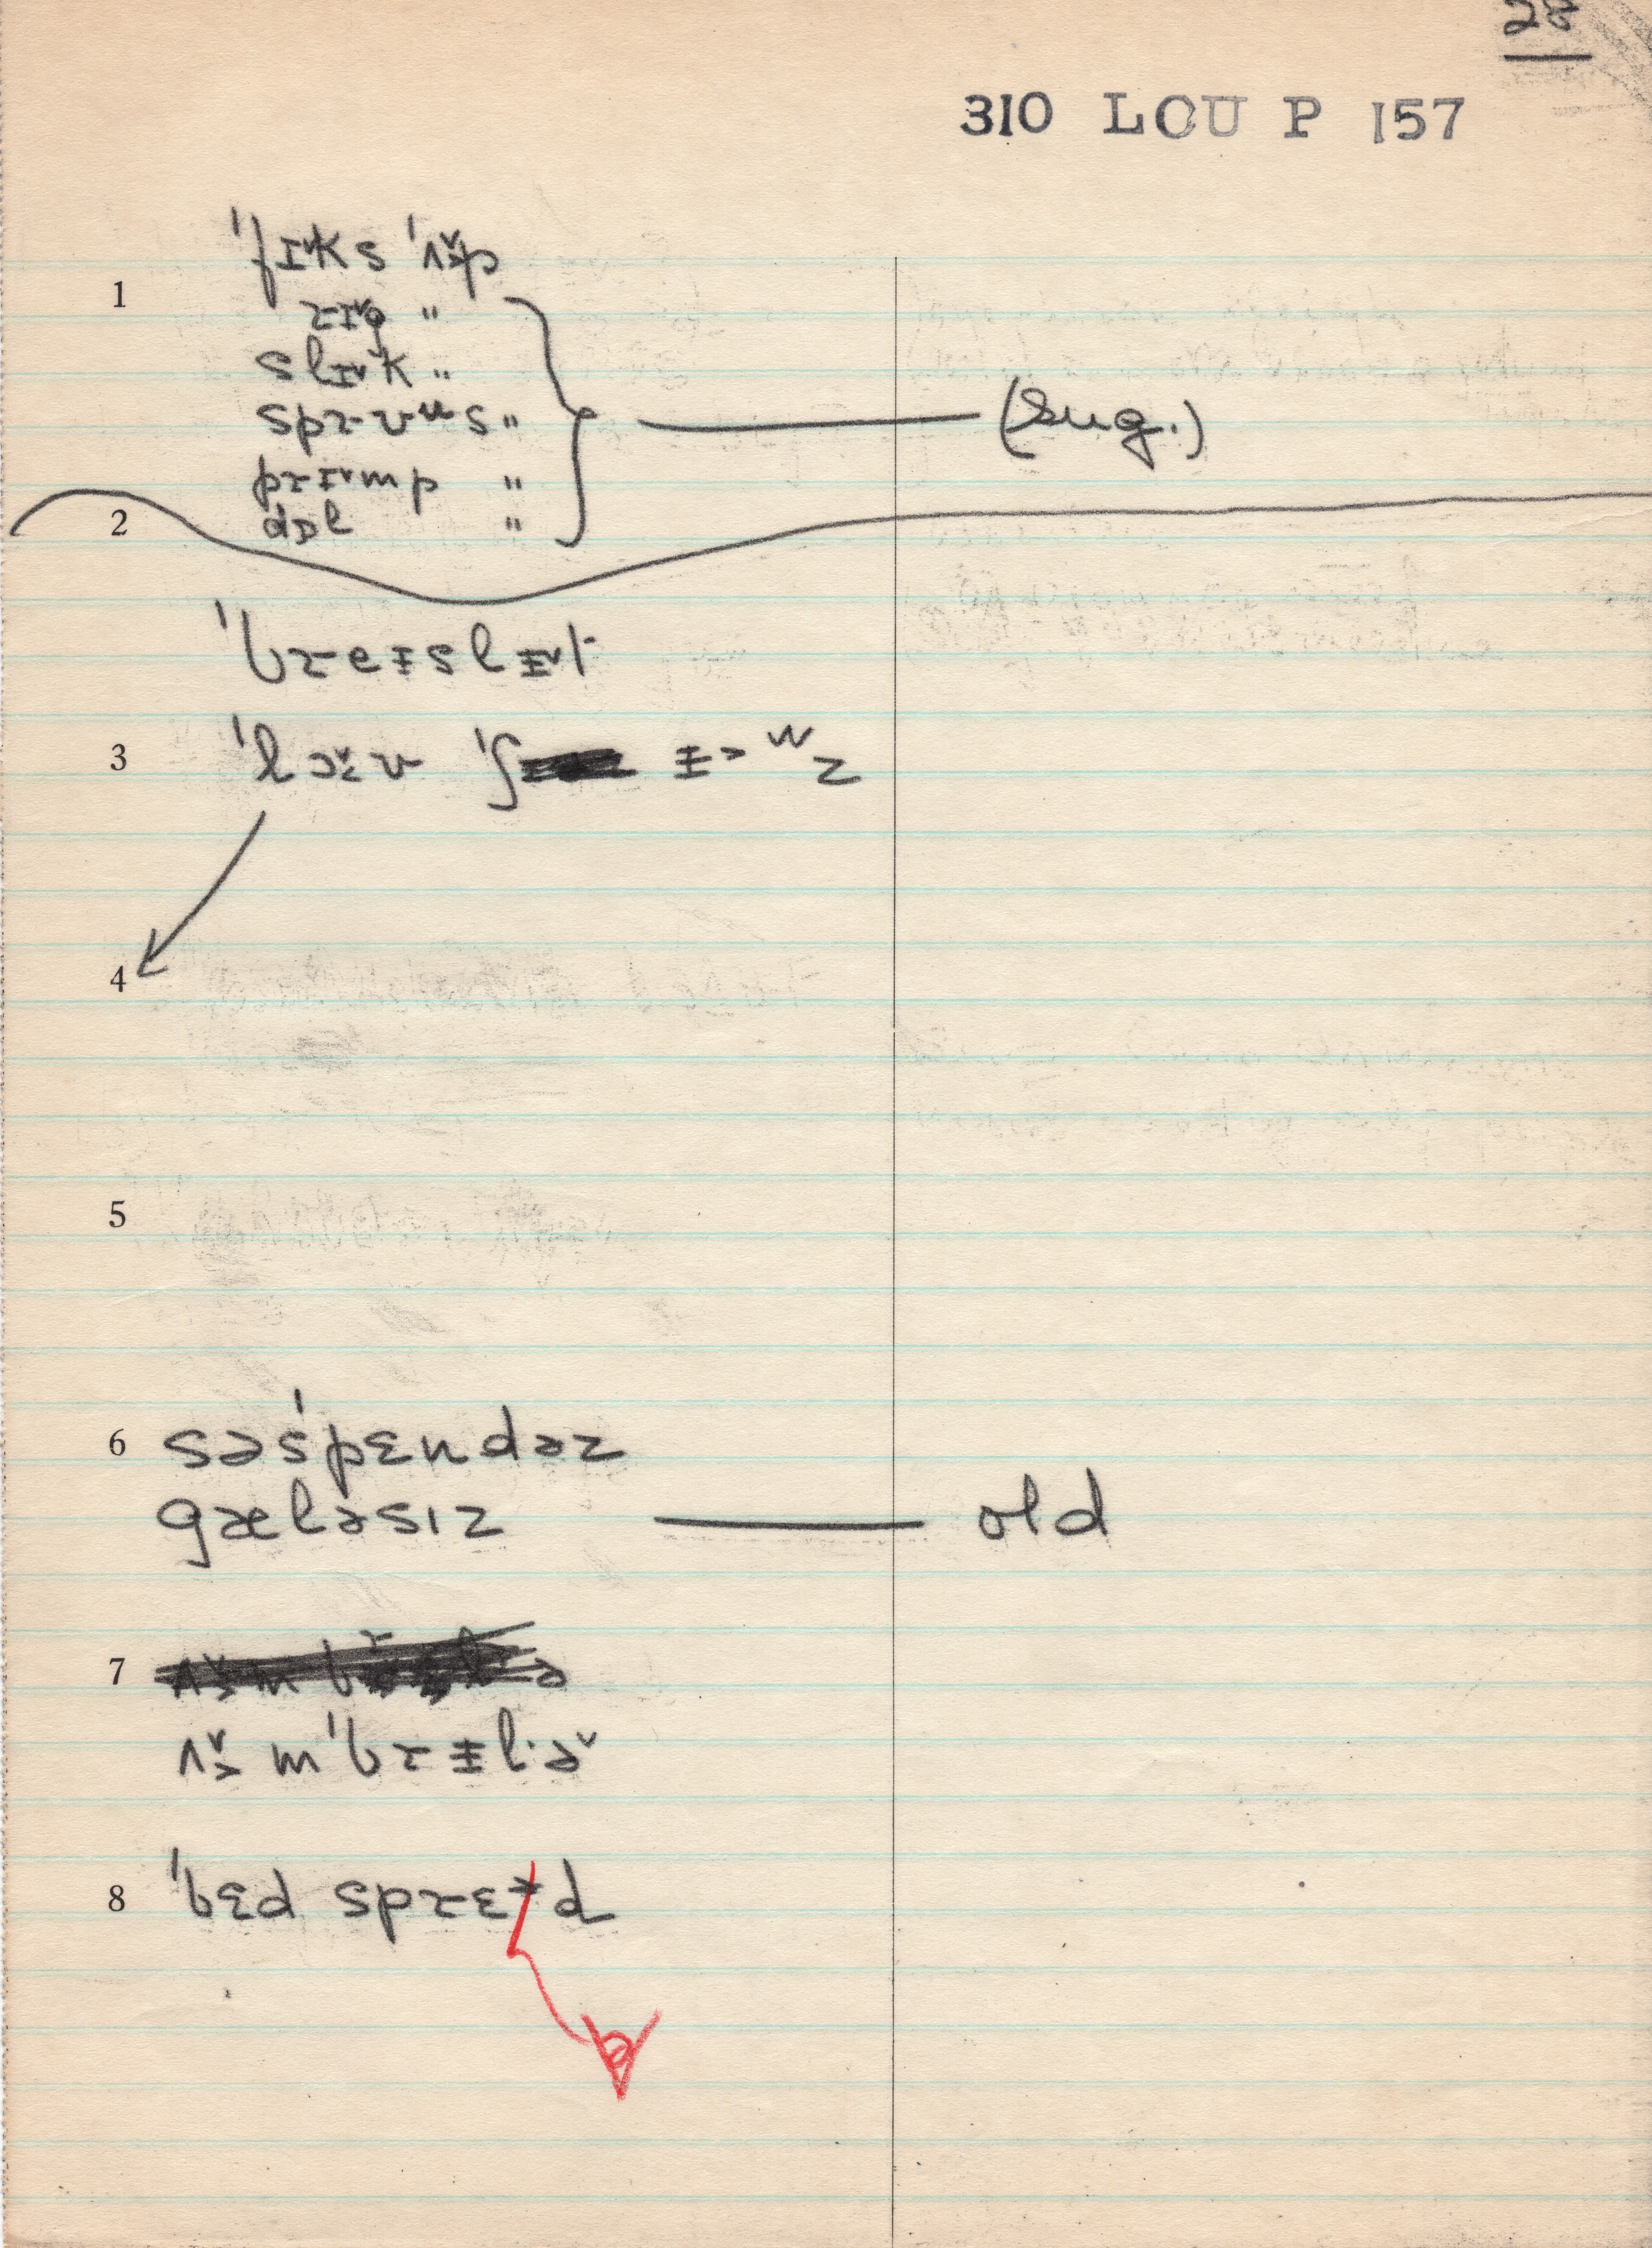 28
310 LOU P 157
1 ˈfɪ˅ks ˈʌ̬˃p
rɪ˅g "
slɪ˅k "
spr-ʊᵘs " (sug.)
prɪ˅mp "
2 dɒl "
ˈbreɪslɨ˅t
3 ˈlə˅v ˈʃ ɨ˃ʷz
4
5
6 səˈspɛndəz
gæləsɪz old
7
ʌ̬˃mˈbrɨl·ə˅
8 ˈbɛd sprɛᵻd